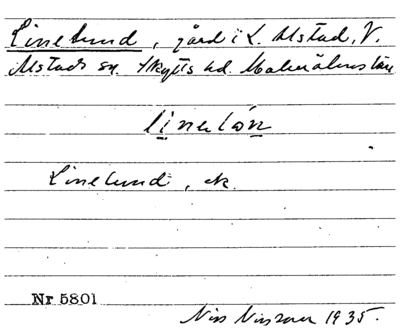 Linelund, gård i L. Alstad, V.
Alstads sn. Skytts hd. Malmöhus län
linelón
Linelund, ek.
Nr 5801
Nils Nilsson 1935.